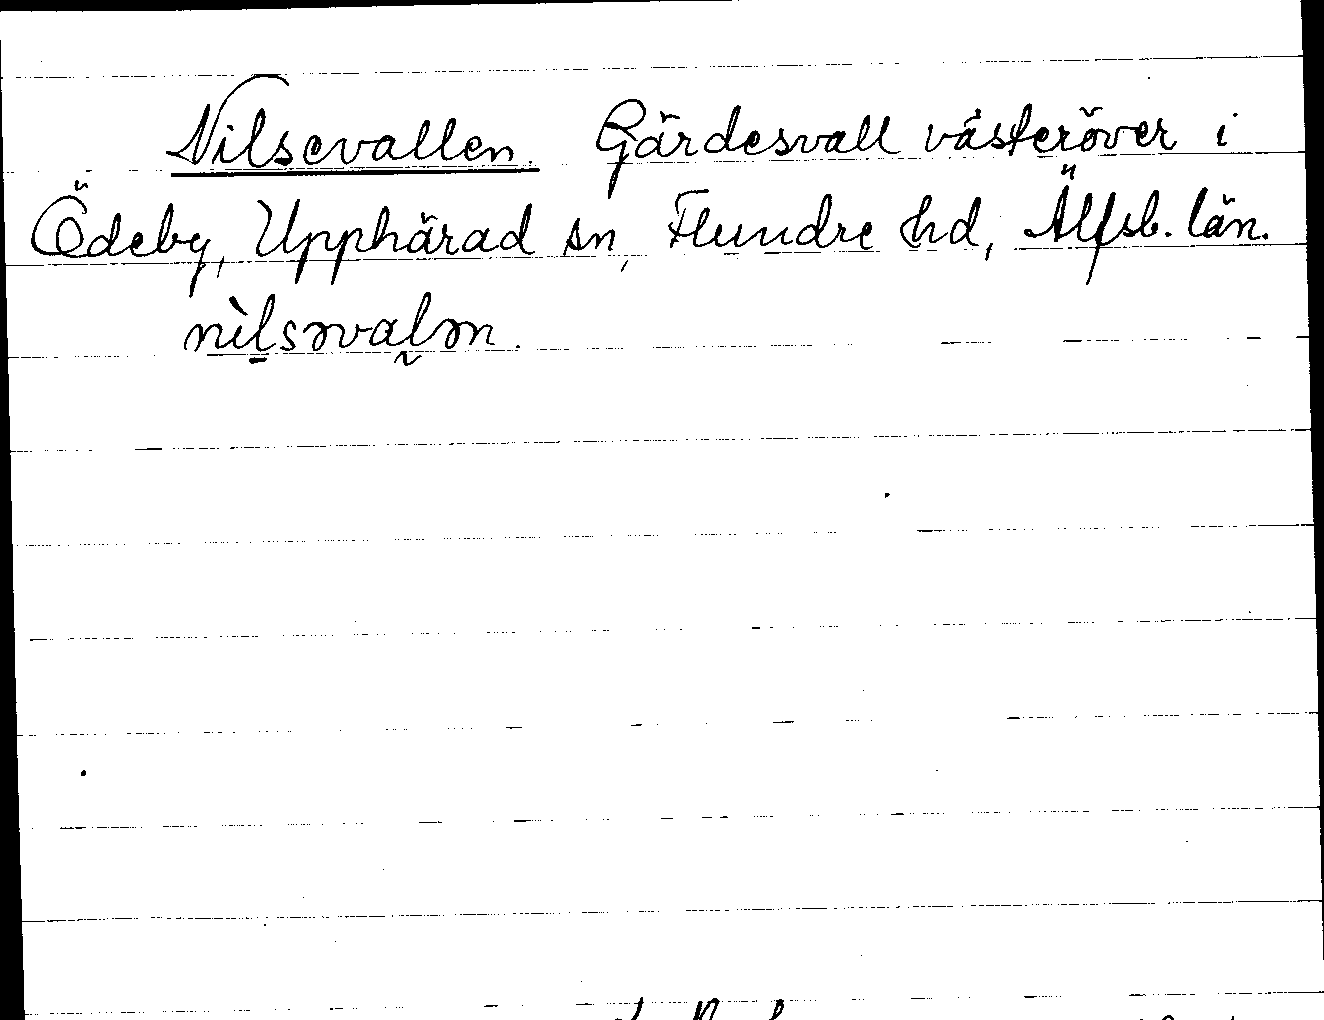 Nilsevallen. Gärdesvall västeröver i
Ödeby, Upphärad sn, Flundre hd, Älfsb. län.
nìl̠səval̰ən.